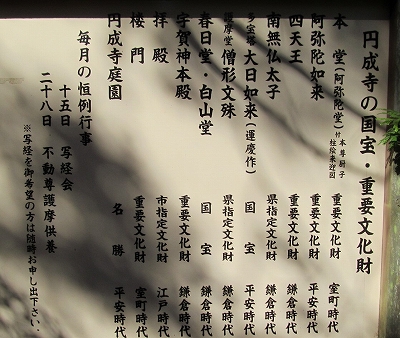 円成寺の国宝・重要文化財
本堂(阿弥陀堂) 付 本尊厨子 柱絵来迎図 重要文化財 室町時代
阿弥陀如来 重要文化財 平安時代
四天王 重要文化財 鎌倉時代
南無仏太子 県指定文化財 鎌倉時代
多宝塔 大日如来(運慶作) 国宝 平安時代
護摩堂 僧形文殊 県指定文化財 鎌倉時代
春日堂・白山堂 国宝 鎌倉時代
宇賀神本殿 重要文化財 鎌倉時代
拝殿 市指定文化財 江戸時代
楼門 重要文化財 室町時代
円成寺庭園 名勝 平安時代
毎月の恒例行事
十五日 写経会
二十八日 不動尊護摩供養
※写経を御希望の方は随時お申し出下さい。